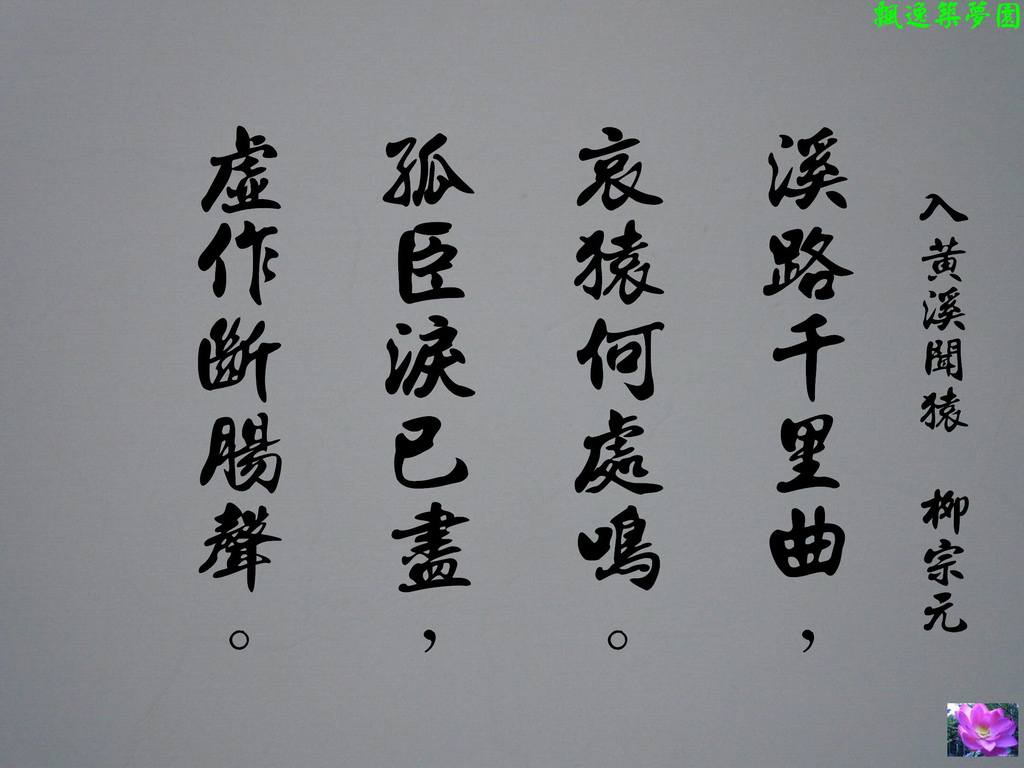 飄逸築夢園
入黃溪聞猿 柳宗元
溪路千里曲，
哀猿何處鳴。
孤臣淚已盡，
虛作斷腸聲。